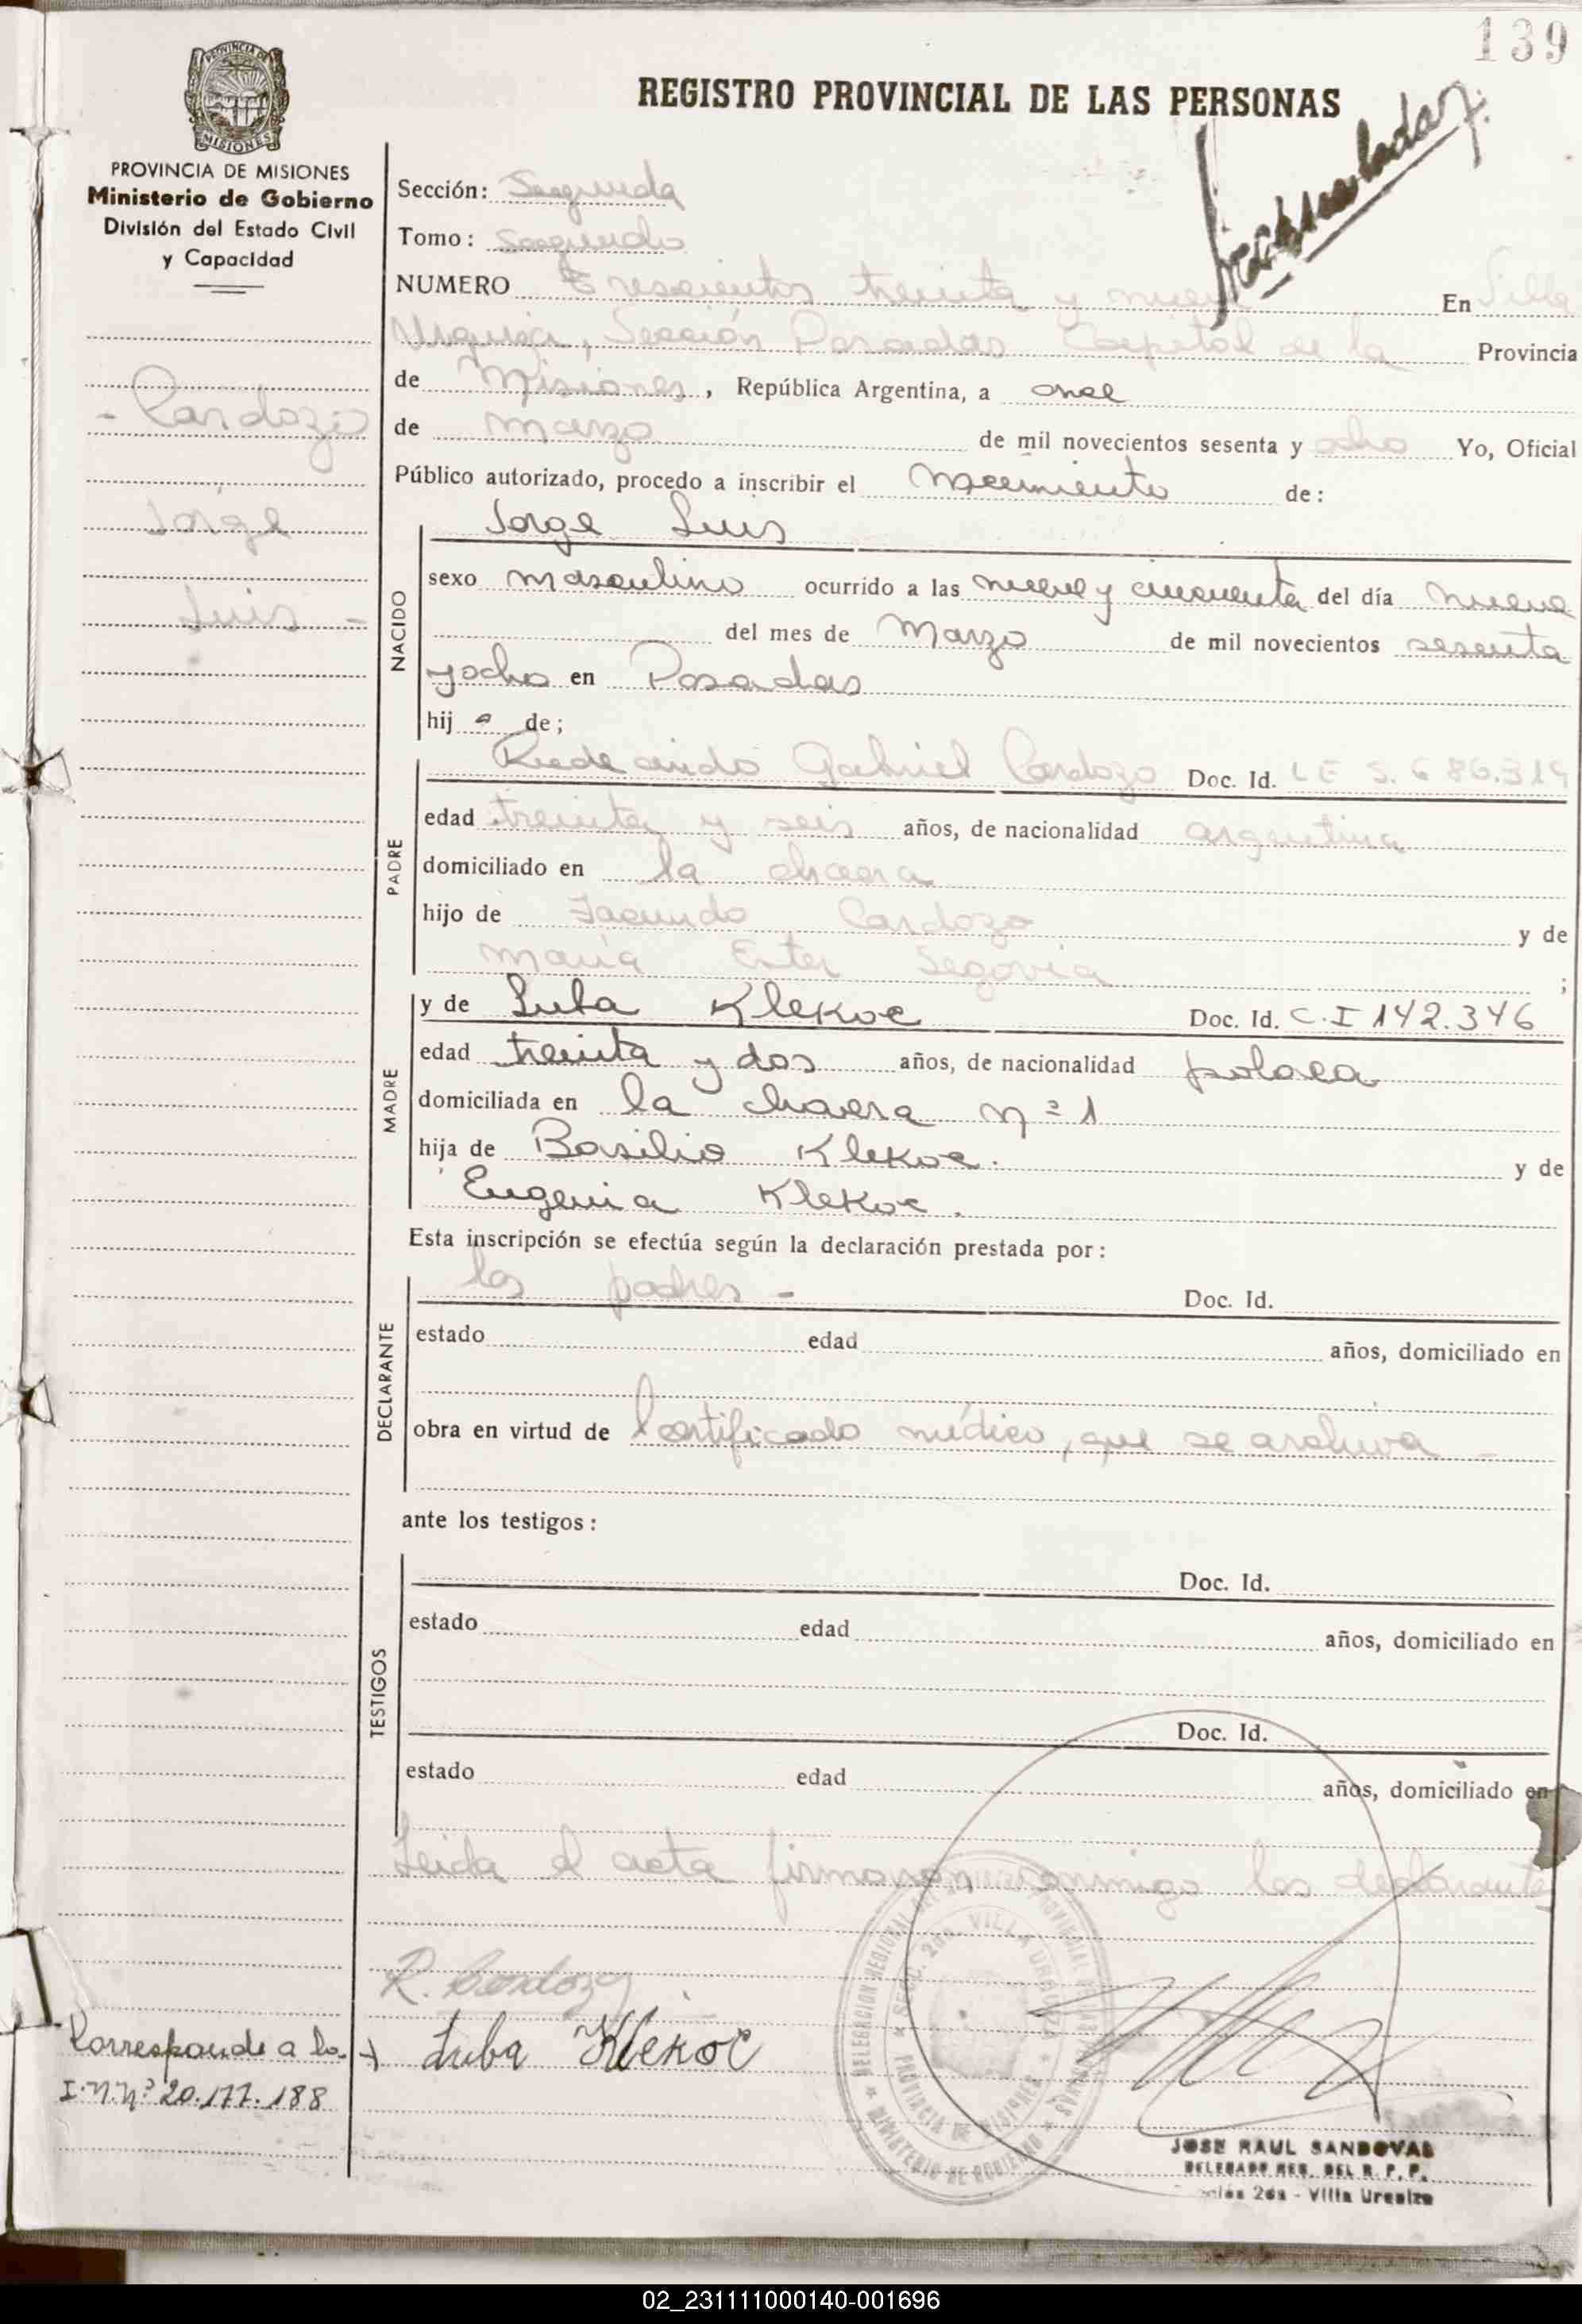 139
PROVINCIA DE
MISIONES
REGISTRO PROVINCIAL DE LAS PERSONAS
PROVINCIA DE MISIONES
Ministerio de Gobierno
División del Estado Civil
y Capacidad
Sección: Segunda
Tomo: Segundo
NUMERO Trescientos treinta y nueve En Villa
Urquiza, Sección Posadas Capital de la Provincia
de Misiones, República Argentina, a once
de marzo de mil novecientos sesenta y ocho Yo, Oficial
Público autorizado, procedo a inscribir el Nacimiento de:
- Cardozo
Jorge
Luis -
NACIDO
Jorge Luis
sexo masculino ocurrido a las nueve y cincuenta del día nueve
del mes de Marzo de mil novecientos sesenta
y ocho en Posadas
hijo de;
PADRE
Gabriel Cardozo Doc. Id. LE 5.686.319
edad treinta y seis años, de nacionalidad argentina
domiciliado en la chacra
hijo de Facundo Cardozo y de
María Ester Segovia ;
MADRE
y de Luba Klekoc Doc. Id. C.I 142.346
edad treinta y dos años, de nacionalidad polaca
domiciliada en la chacra nº 1
hija de Basilio Klekoc. y de
Eugenia Klekoc.
Esta inscripción se efectúa según la declaración prestada por:
DECLARANTE
los padres - Doc. Id.
estado edad años, domiciliado en
obra en virtud de Certificado médico, que se archiva -
ante los testigos:
TESTIGOS
Doc. Id.
estado edad años, domiciliado en
Doc. Id.
estado edad años, domiciliado en
Leida el acta firmaron conmigo los declarantes
R. Cardozo
Luba Klekoc
Corresponde a la
I.N.Nº 20.177.188
DELEGACION REGIONAL
SECC. 2da. VILLA URQUIZA
PROVINCIA DE MISIONES
MINISTERIO DE GOBIERNO
JOSE RAUL SANDOVAL
DELEGADO REG. DEL R. P. P.
2da - Villa Urquiza
02_231111000140-001696